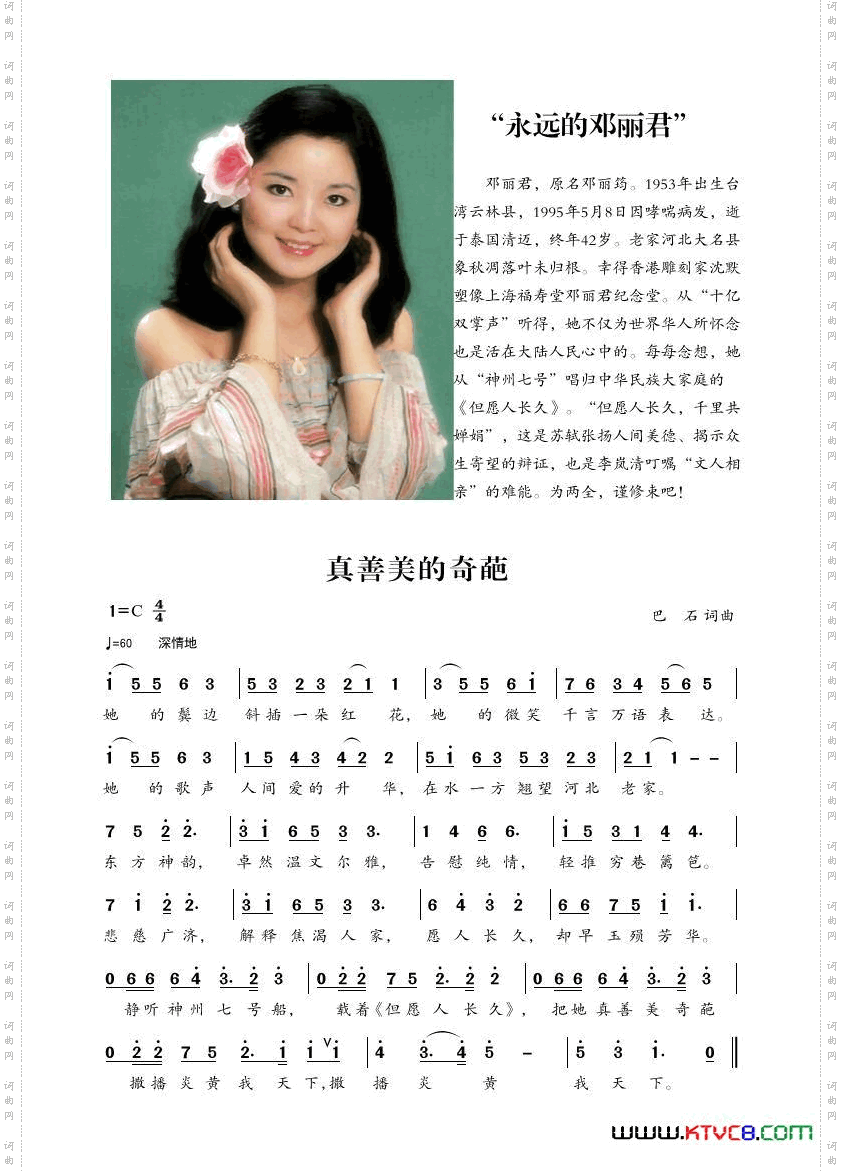 “永远的邓丽君”
邓丽君，原名邓丽筠。1953年出生台
湾云林县，1995年5月8日因哮喘病发，逝
于泰国清迈，终年42岁。老家河北大名县
象秋凋落叶未归根。幸得香港雕刻家沈默
塑像上海福寿堂邓丽君纪念堂。从“十亿
双掌声”听得，她不仅为世界华人所怀念
也是活在大陆人民心中的。每每念想，她
从“神州七号”唱归中华民族大家庭的
《但愿人长久》。“但愿人长久，千里共
婵娟”，这是苏轼张扬人间美德、揭示众
生寄望的辩证，也是李岚清叮嘱“文人相
亲”的难能。为两全，谨修束吧！
真善美的奇葩
1=C 4/4
巴 石 词曲
♩=60 深情地
1̇ 5 5 6 3 | 5 3 2 3 2 1 1 | 3 5 5 6 1̇ | 7 6 3 4 5 6 5 |
她 的鬓边 斜插一朵红 花，她 的微笑 千言万语表 达。
1̇ 5 5 6 3 | 1 5 4 3 4 2 2 | 5 1̇ 6 3 5 3 2 3 | 2 1 1 - - |
她 的歌声 人间爱的升 华，在水一方翘望河北 老家。
7 5 2̇ 2̇. | 3̇ 1̇ 6 5 3 3. | 1 4 6 6. | 1̇ 5 3 1 4 4. |
东方神韵， 卓然温文尔雅， 告慰纯情， 轻推穷巷篱笆。
7 1̇ 2̇ 2̇. | 3̇ 1̇ 6 5 3 3. | 6 4̇ 3̇ 2̇ | 6 6 7 5 1̇ 1̇. |
悲慈广济， 解释焦渴人家， 愿人长久， 却早玉殒芳华。
0 6 6 6 4̇ 3̇. 2̇ 3̇ | 0 2̇ 2̇ 7 5 2̇. 2̇ | 0 6 6 6 4̇ 3̇. 2̇ 3̇ |
静听神州七号船， 载着《但愿人长久》，把她真善美奇葩
0 2̇ 2̇ 7 5 2̇. 1̇ 1̇ ∨ 1̇ | 4̇ 3̇. 4̇ 5̇ - | 5̇ 3̇ 1̇. 0 ‖
撒播炎黄我天下，撒 播炎 黄 我天下。
www.KTVC8.com
词曲网